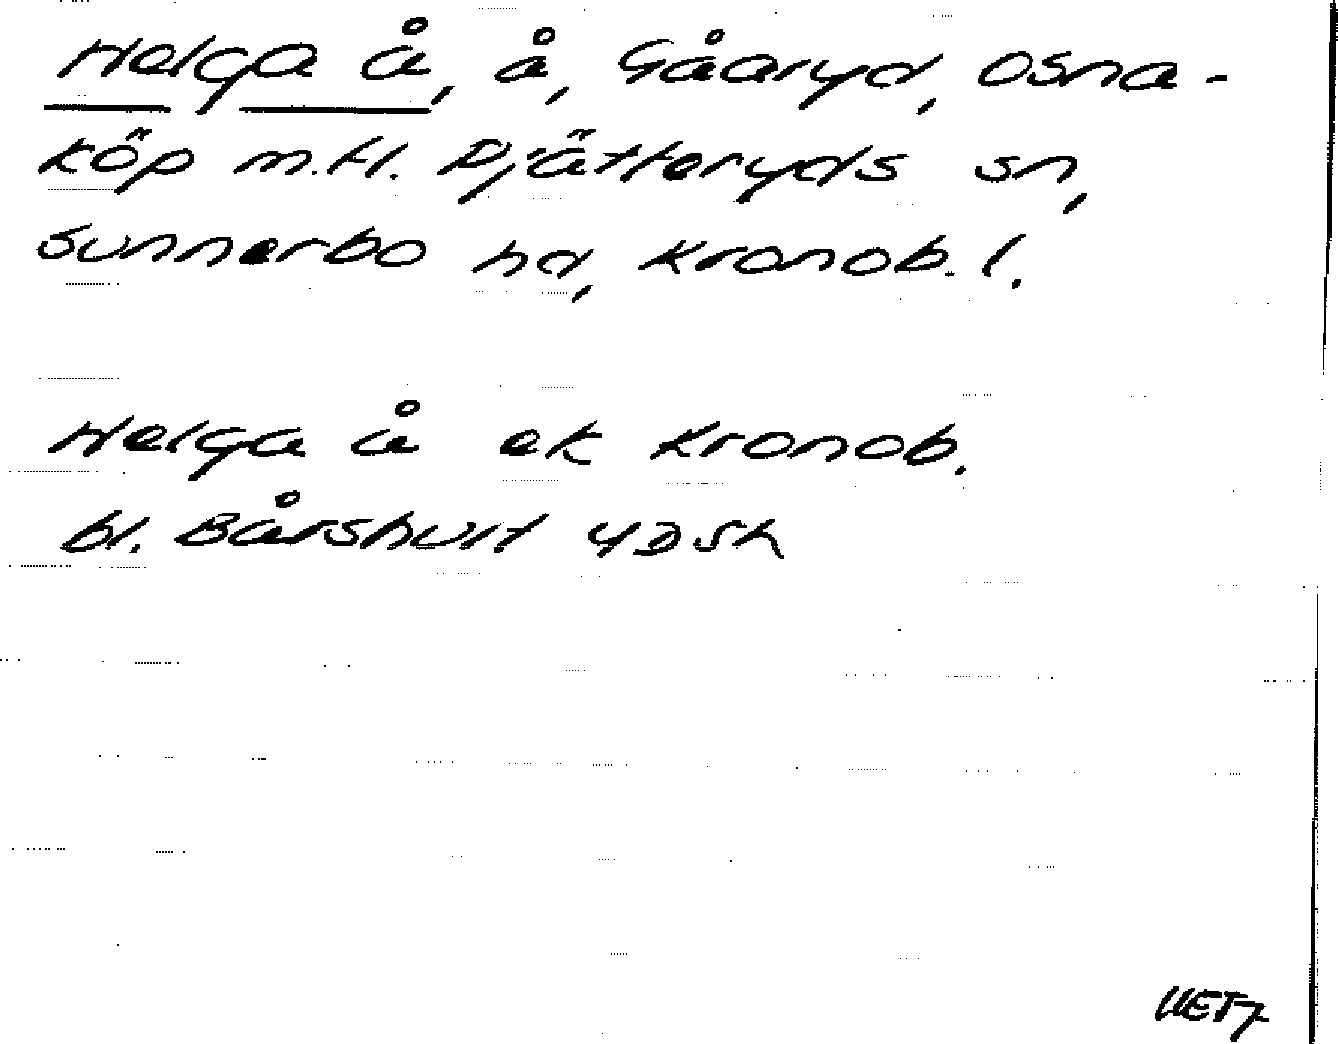 Helga å, å, Gåaryd, Osna-
köp m.fl. Pjätteryds sn,
Sunnerbo hd, Kronob. l.
Helga å ek Kronob.
bl. Båshult 4D5h